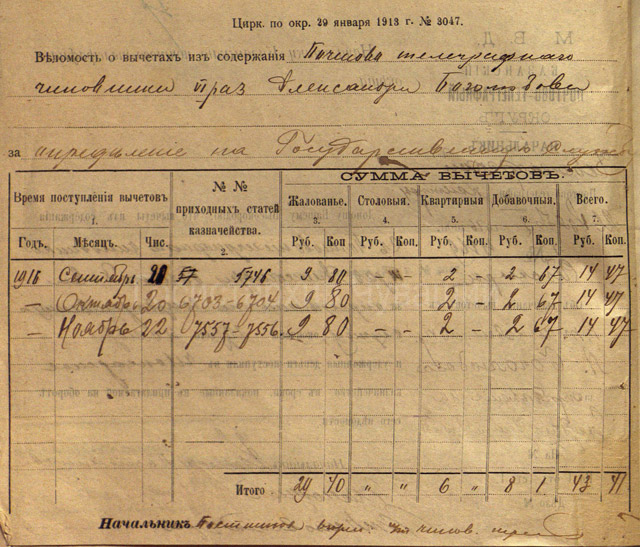 Цирк. по окр. 29 января 1913 г. № 3047.
Вѣдомость о вычетахъ изъ содержанiя Почтово телеграфнаго
чиновника Александра
за опредѣленiе на Государственную
Время поступленiя вычетовъ
№ № приходныхъ статей казначейства.
СУММА ВЫЧЕТОВЪ.
Жалованье. Столовыя. Квартирныя Добавочныя. Всего.
1. 2. 3. 4. 5. 6. 7.
Годъ. Мѣсяцъ. Чис. Руб. Коп. Руб. Коп. Руб. Коп. Руб. Коп. Руб. Коп.
1916 Сентябрь 20 5746 9 80 - - 2 - 2 67 14 47
— Октябрь 20 6703-6704 9 80 - - 2 - 2 67 14 47
— Ноябрь 22 7557-7556 9 80 - - 2 - 2 67 14 47
Итого 29 40 „ „ 6 „ 8 1 43 41
Начальникъ